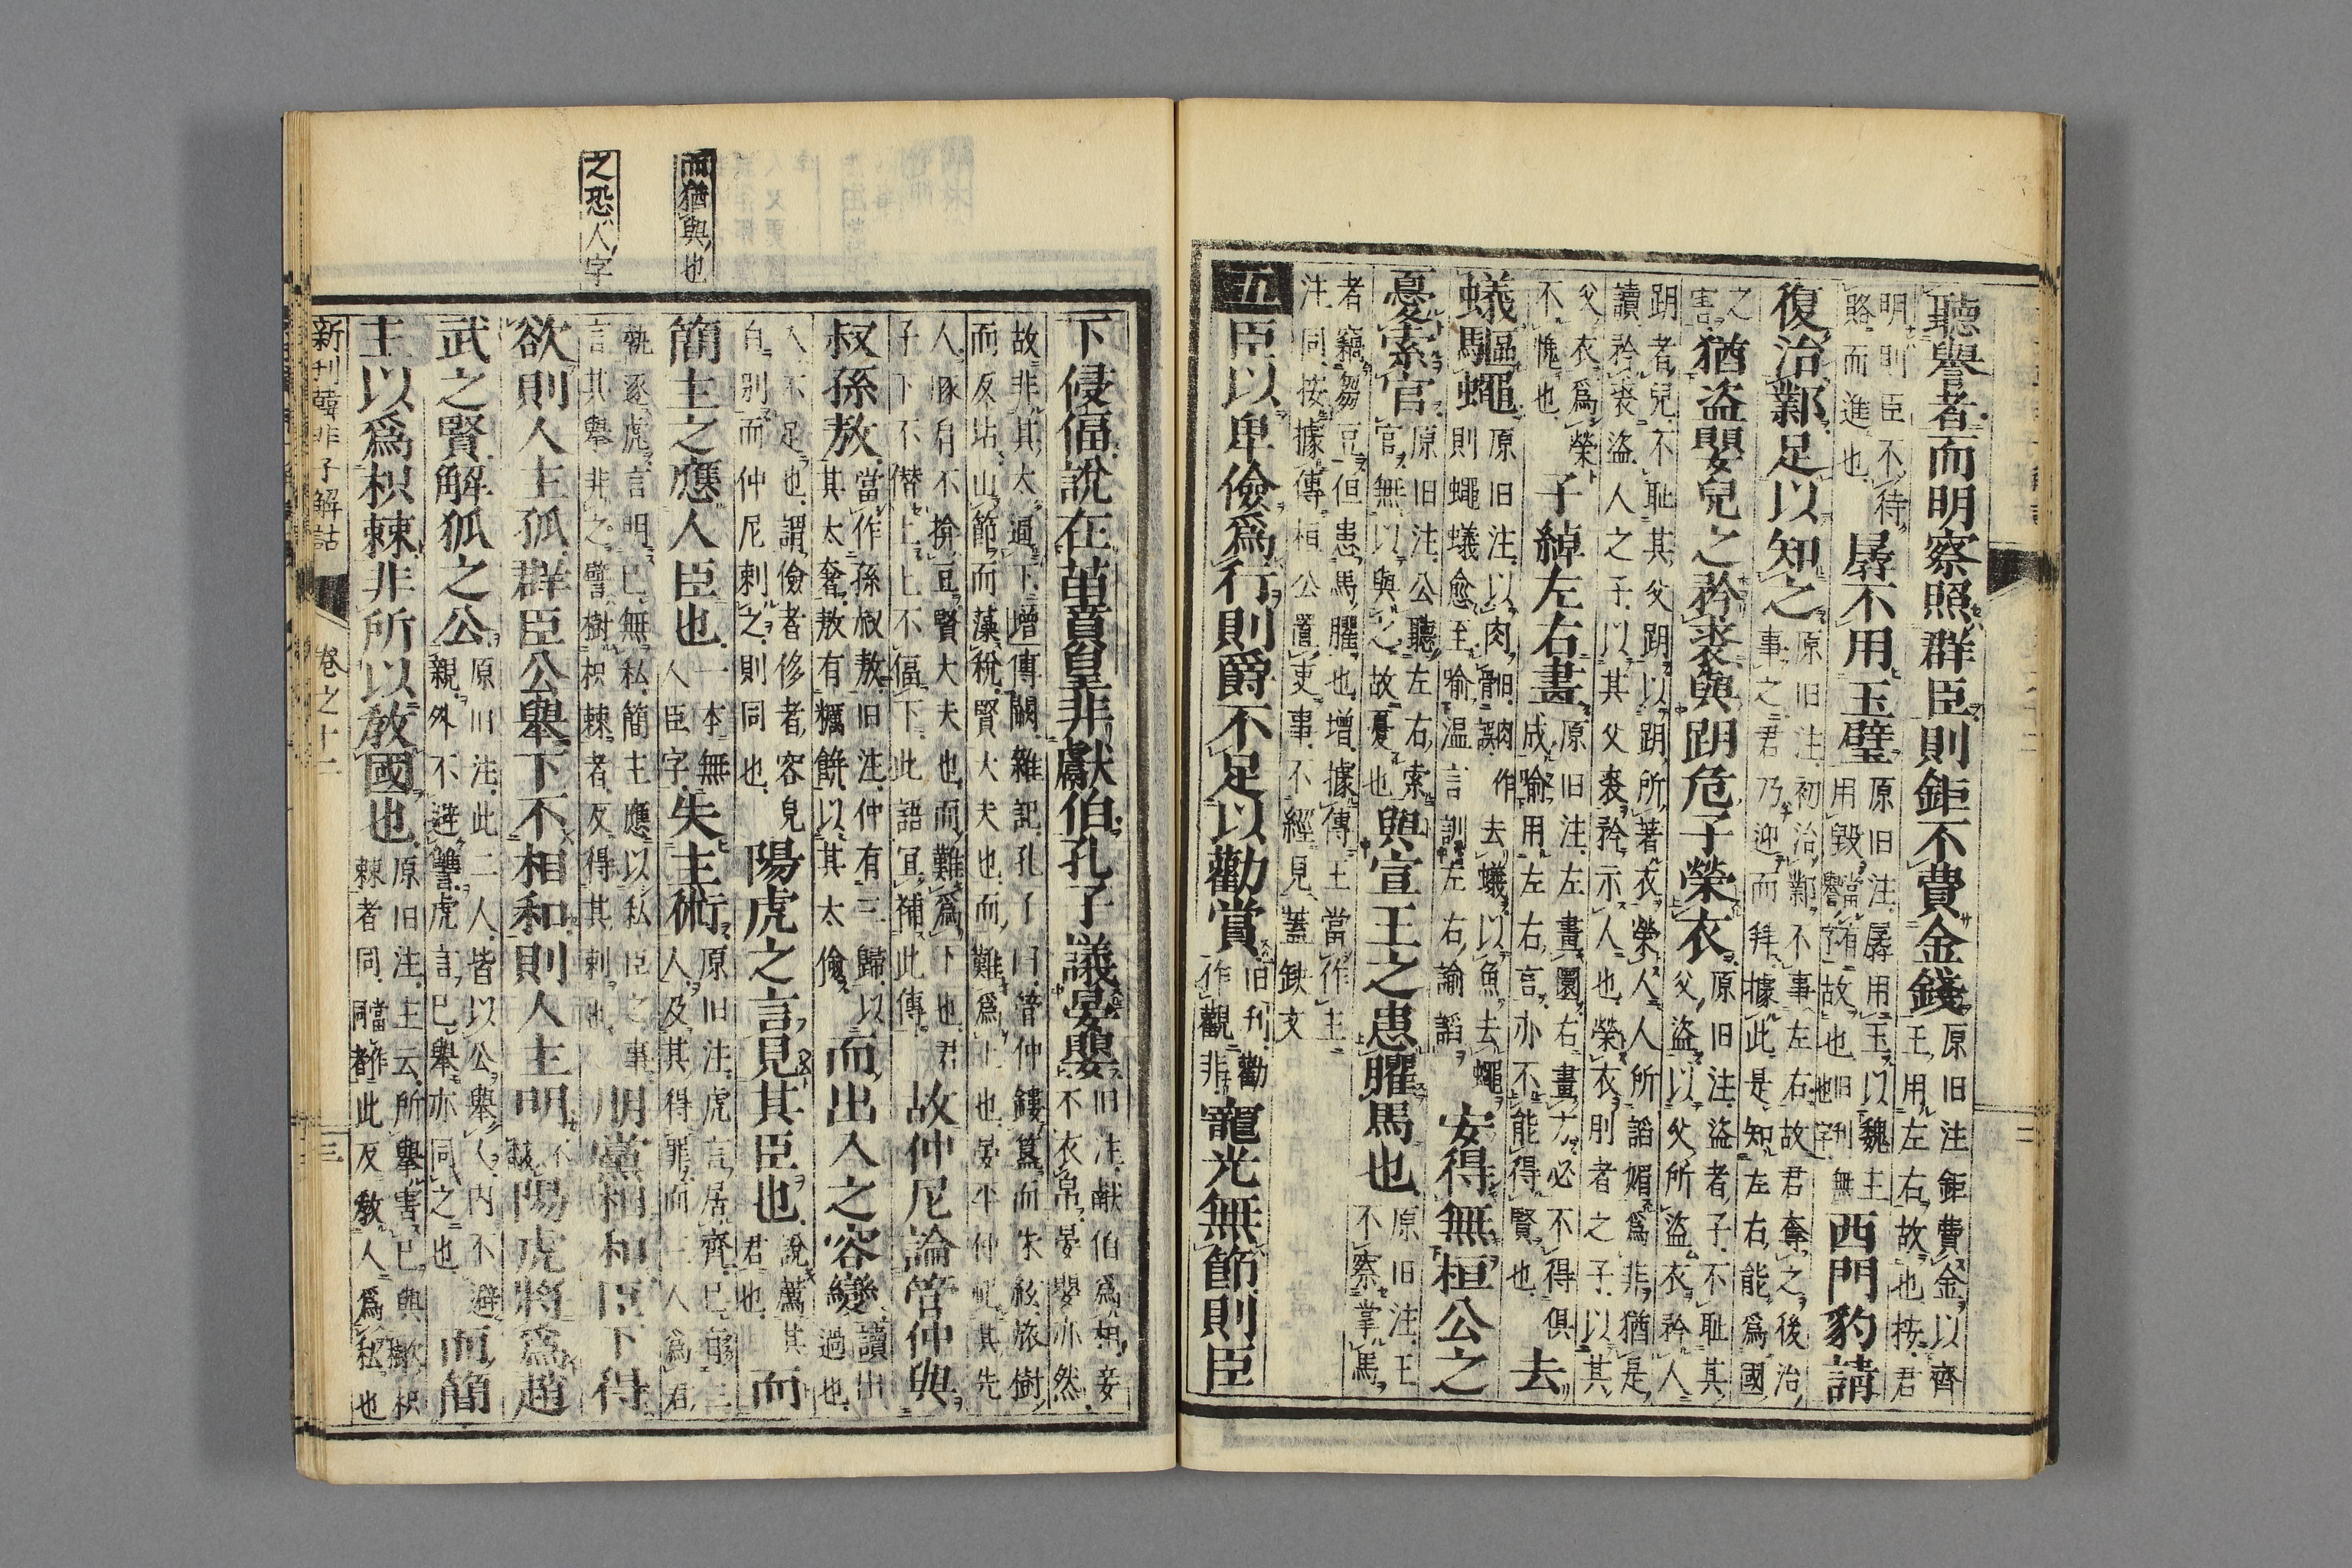 聽譽者而明察照群臣則鉅不費金錢原旧注鉅費金以齊王用左右故也按君
明則臣不待賂而進也孱不用玉璧原旧注孱用玉以魏王用毀譽當有故也旧刊無也字西門豹請
復治鄴足以知之原旧注初治鄴不事左右故君奪之後治事之君乃迎而拜據此是知左右能為國
之害猶盜嬰兒之矜裘與跀危子榮衣原旧注盜者子不耻其父盜以父所盜衣矜人
跀者兒不耻其父跀以跀所著衣榮人人所謟媚為非猶是讀矜裘盜人之子以其父裘矜示人也榮衣刖者之子以其
父衣為榮不愧也子綽左右畫原旧注左畫圓右畫方必不得俱成喻用左右言亦不能得賢也去
蟻驅蠅原旧注以肉去蟻以魚去蠅則蠅蟻愈至喻温言訓左右諭謟安得無桓公之
憂索官原旧注公聽左右索官無以與之故憂也與宣王之患臞馬也原旧注王不察掌馬
者竊芻豆但患馬臞也增據傳王當作主注同按據傳桓公置吏事不經見蓋缺文
五臣以卑儉為行則爵不足以勸賞旧刊勸作觀非寵光無節則臣
下侵偪說在苗賁皇非獻伯孔子議晏嬰旧注献伯為相妾不衣帛晏嬰亦然
故非其太逼下增傳闕雜記孔子曰管仲鏤簋而朱紘旅樹而反坫山節而藻梲賢大夫也而難為上也晏平仲祀其先
人豚肩不揜豆賢大夫也而難為下也君子下不僭上上不偪下此語冝補此傳故仲尼論管仲與
叔孫敖當作孫叔敖旧注仲有三歸以其太奢敖有糲餅以其太儉而出入之容變讀出過也
入不足也謂儉者侈者容皃自別而仲尼刺之則同也陽虎之言見其臣也說薦其君也而
簡主之應人臣也一本無人臣字失主術原旧注虎言居齊已薦三人及其得罪而三人為君
執逐虎言明已無私簡主應以私臣之事言其舉非之譬樹枳棘者反得其刺也朋黨相和臣下得
欲則人主孤群臣公舉下不相和則人主明陽虎將為趙
武之賢解狐之公原旧注此二人皆以公舉人内不避親外不避讐虎言已舉亦同之也而簡
主以為枳棘非所以教國也原旧注主云所舉害已與樹枳棘者同當作同者此反教人為私也
而猶與也
之恐人字
新刊韓非子解詁
卷之十二
三